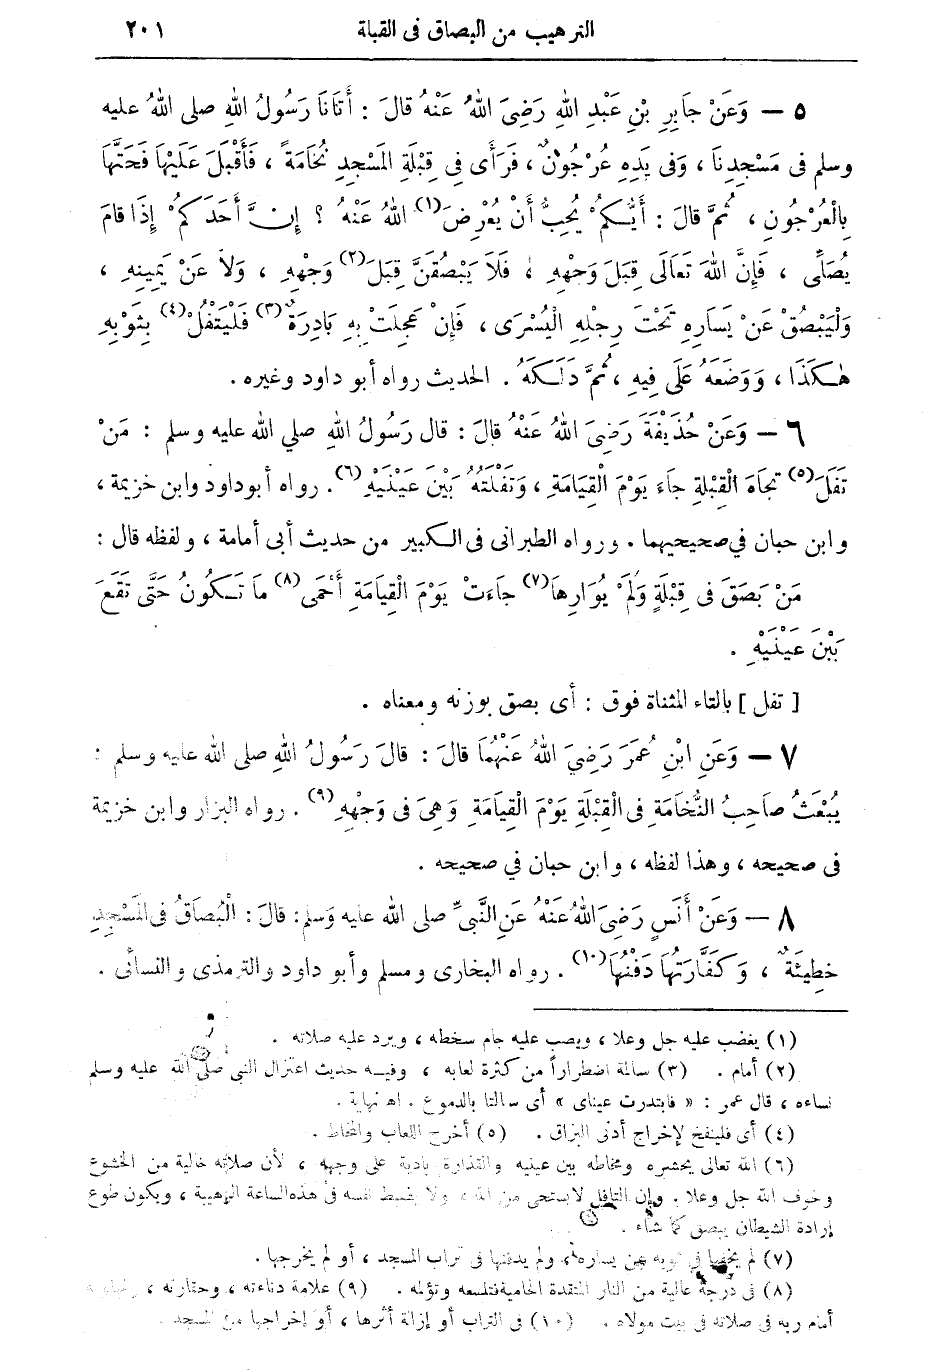 الترهيب من البصاق فى القبلة ٢٠١
٥ — وَعَنْ جَابِرِ بْنِ عَبْدِ اللهِ رَضِىَ اللهُ عَنْهُ قالَ : أَتَانَا رَسُولُ اللهِ صلى اللهُ عليه
وسلم فى مَسْجِدِنَا ، وَفى يَدِهِ عُرْجُونٌ ، فَرَأَى فِى قِبْلَةِ المَسْجِدِ نُخَامَةً ، فَأَقْبَلَ عَلَيْهَا فَحَتَّهَا
بِالْعُرْجُونِ ، ثُمَّ قالَ : أَيُّكُمْ يُحِبُّ أَنْ يُعْرِضَ(١) اللهُ عَنْهُ ؟ إِنَّ أَحَدَكُمْ إِذَا قامَ
يُصَلِّى ، فَإِنَّ اللهَ تَعَالَى قِبَلَ وَجْهِهِ ، فَلَا يَبْصُقَنَّ قِبَلَ(٢) وَجْهِهِ ، وَلاَ عَنْ يَمِينِهِ ،
وَلْيَبْصُقْ عَنْ يَسَارِهِ تَحْتَ رِجْلِهِ الْيُسْرَى ، فَإِنْ عَجِلَتْ بِهِ بَادِرَةٌ(٣) فَلْيَتْفُلْ(٤) بِثَوْبِهِ
هٰكَذَا ، وَوَضَعَهُ عَلَى فِيهِ ، ثُمَّ دَلَكَهُ . الحديث رواه أبو داود وغيره .
٦ — وَعَنْ حُذَيْفَةَ رَضِىَ اللهُ عَنْهُ قالَ : قال رَسُولُ اللهِ صلي الله عليه وسلم : مَنْ
تَفَلَ(٥) تجَاهَ الْقِبْلَةِ جَاءَ يَوْمَ الْقِيَامَةِ ، وَتَفْلَتُهُ بَيْنَ عَيْنَيْهِ(٦) . رواه أبوداود وابن خزيمة ،
وابن حبان في صحيحيهما . ورواه الطبرانى فى الكبير من حديث أبى أمامة ، ولفظه قال :
مَنْ بَصَقَ فى قِبْلَةٍ وَلَمْ يُوَارِهَا(٧) جاءَتْ يَوْمَ الْقِيَامَةِ أَحْمَى(٨) مَا تَكُونُ حَتَّى تَقَعَ
بَيْنَ عَيْنَيْهِ .
[ تفل ] بالتاء المثناة فوق : أى بصق بوزنه ومعناه .
٧ — وَعَنِ ابْنِ عُمَرَ رَضِيَ اللهُ عَنْهُمَا قالَ : قالَ رَسُولُ اللهِ صلى الله عليه وسلم :
يُبْعَثُ صاَحِبُ النُّخَامَةِ فى الْقِبْلَةِ يَوْمَ الْقِيَامَةِ وَهِىَ فى وَجْهِهِ(٩) . رواه البزار وابن خزيمة
فى صحيحه ، وهذا لفظه ، وابن حبان في صحيحه .
٨ — وَعَنْ أَنَسٍ رَضِىَ اللهُ عَنْهُ عَنِ النَّبىِّ صلى الله عليه وَسلم: قالَ : الْبُصَاقُ فى المَسْجِدِ
خطِيئَةٌ ، وَكَفَّارَتُهَا دَفْنُهَا(١٠) . رواه البخارى ومسلم وأبو داود والترمذى والنسائى .
(١) يغضب عليه جل وعلا ، ويصب عليه جام سخطه ، ويرد عليه صلاته .
(٢) أمام . (٣) سالة اضطراراً من كثرة لعابه ، وفيه حديث اعتزال النبى صلى الله عليه وسلم
نساءه ، قال عمر : « فابتدرت عيناى » أى سالتا بالدموع . اه نهاية .
(٤) أى فلينفخ لإخراج أدنى البزاق . (٥) أخرج اللعاب والمخاط .
(٦) الله تعالى يحشره ومخاطه بين عينيه والقذارة بادية على وجهه ، لأن صلاته خالية من الخشوع
وخوف الله جل وعلا . وإن التافل لايستحى من الله ، ولا يضبط نفسه فى هذه الساعة الرهيبة ، ويكون طوع
إرادة الشيطان يبصق كما شاء .
(٧) لم يخفها فى ثوبه عن يساره ، ولم يدفنها فى تراب المسجد ، أو لم يخرجها .
(٨) فى درجة عالية من النار المتقدة الحامية فتلسعه وتؤلمه . (٩) علامة دناءته ، وحقارته ،
أمام ربه فى صلاته فى بيت مولاه . (١٠) فى التراب أو إزالة أثرها ، أو إخراجها من المسجد .